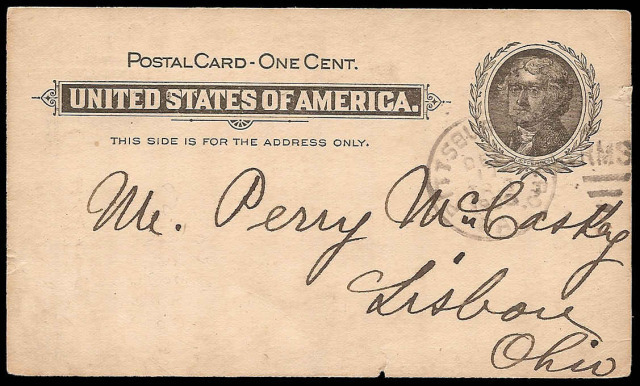 POSTAL CARD - ONE CENT.
UNITED STATES OF AMERICA.
THIS SIDE IS FOR THE ADDRESS ONLY.
RMS
Mr. Perry McCaskey
Lisbon
Ohio